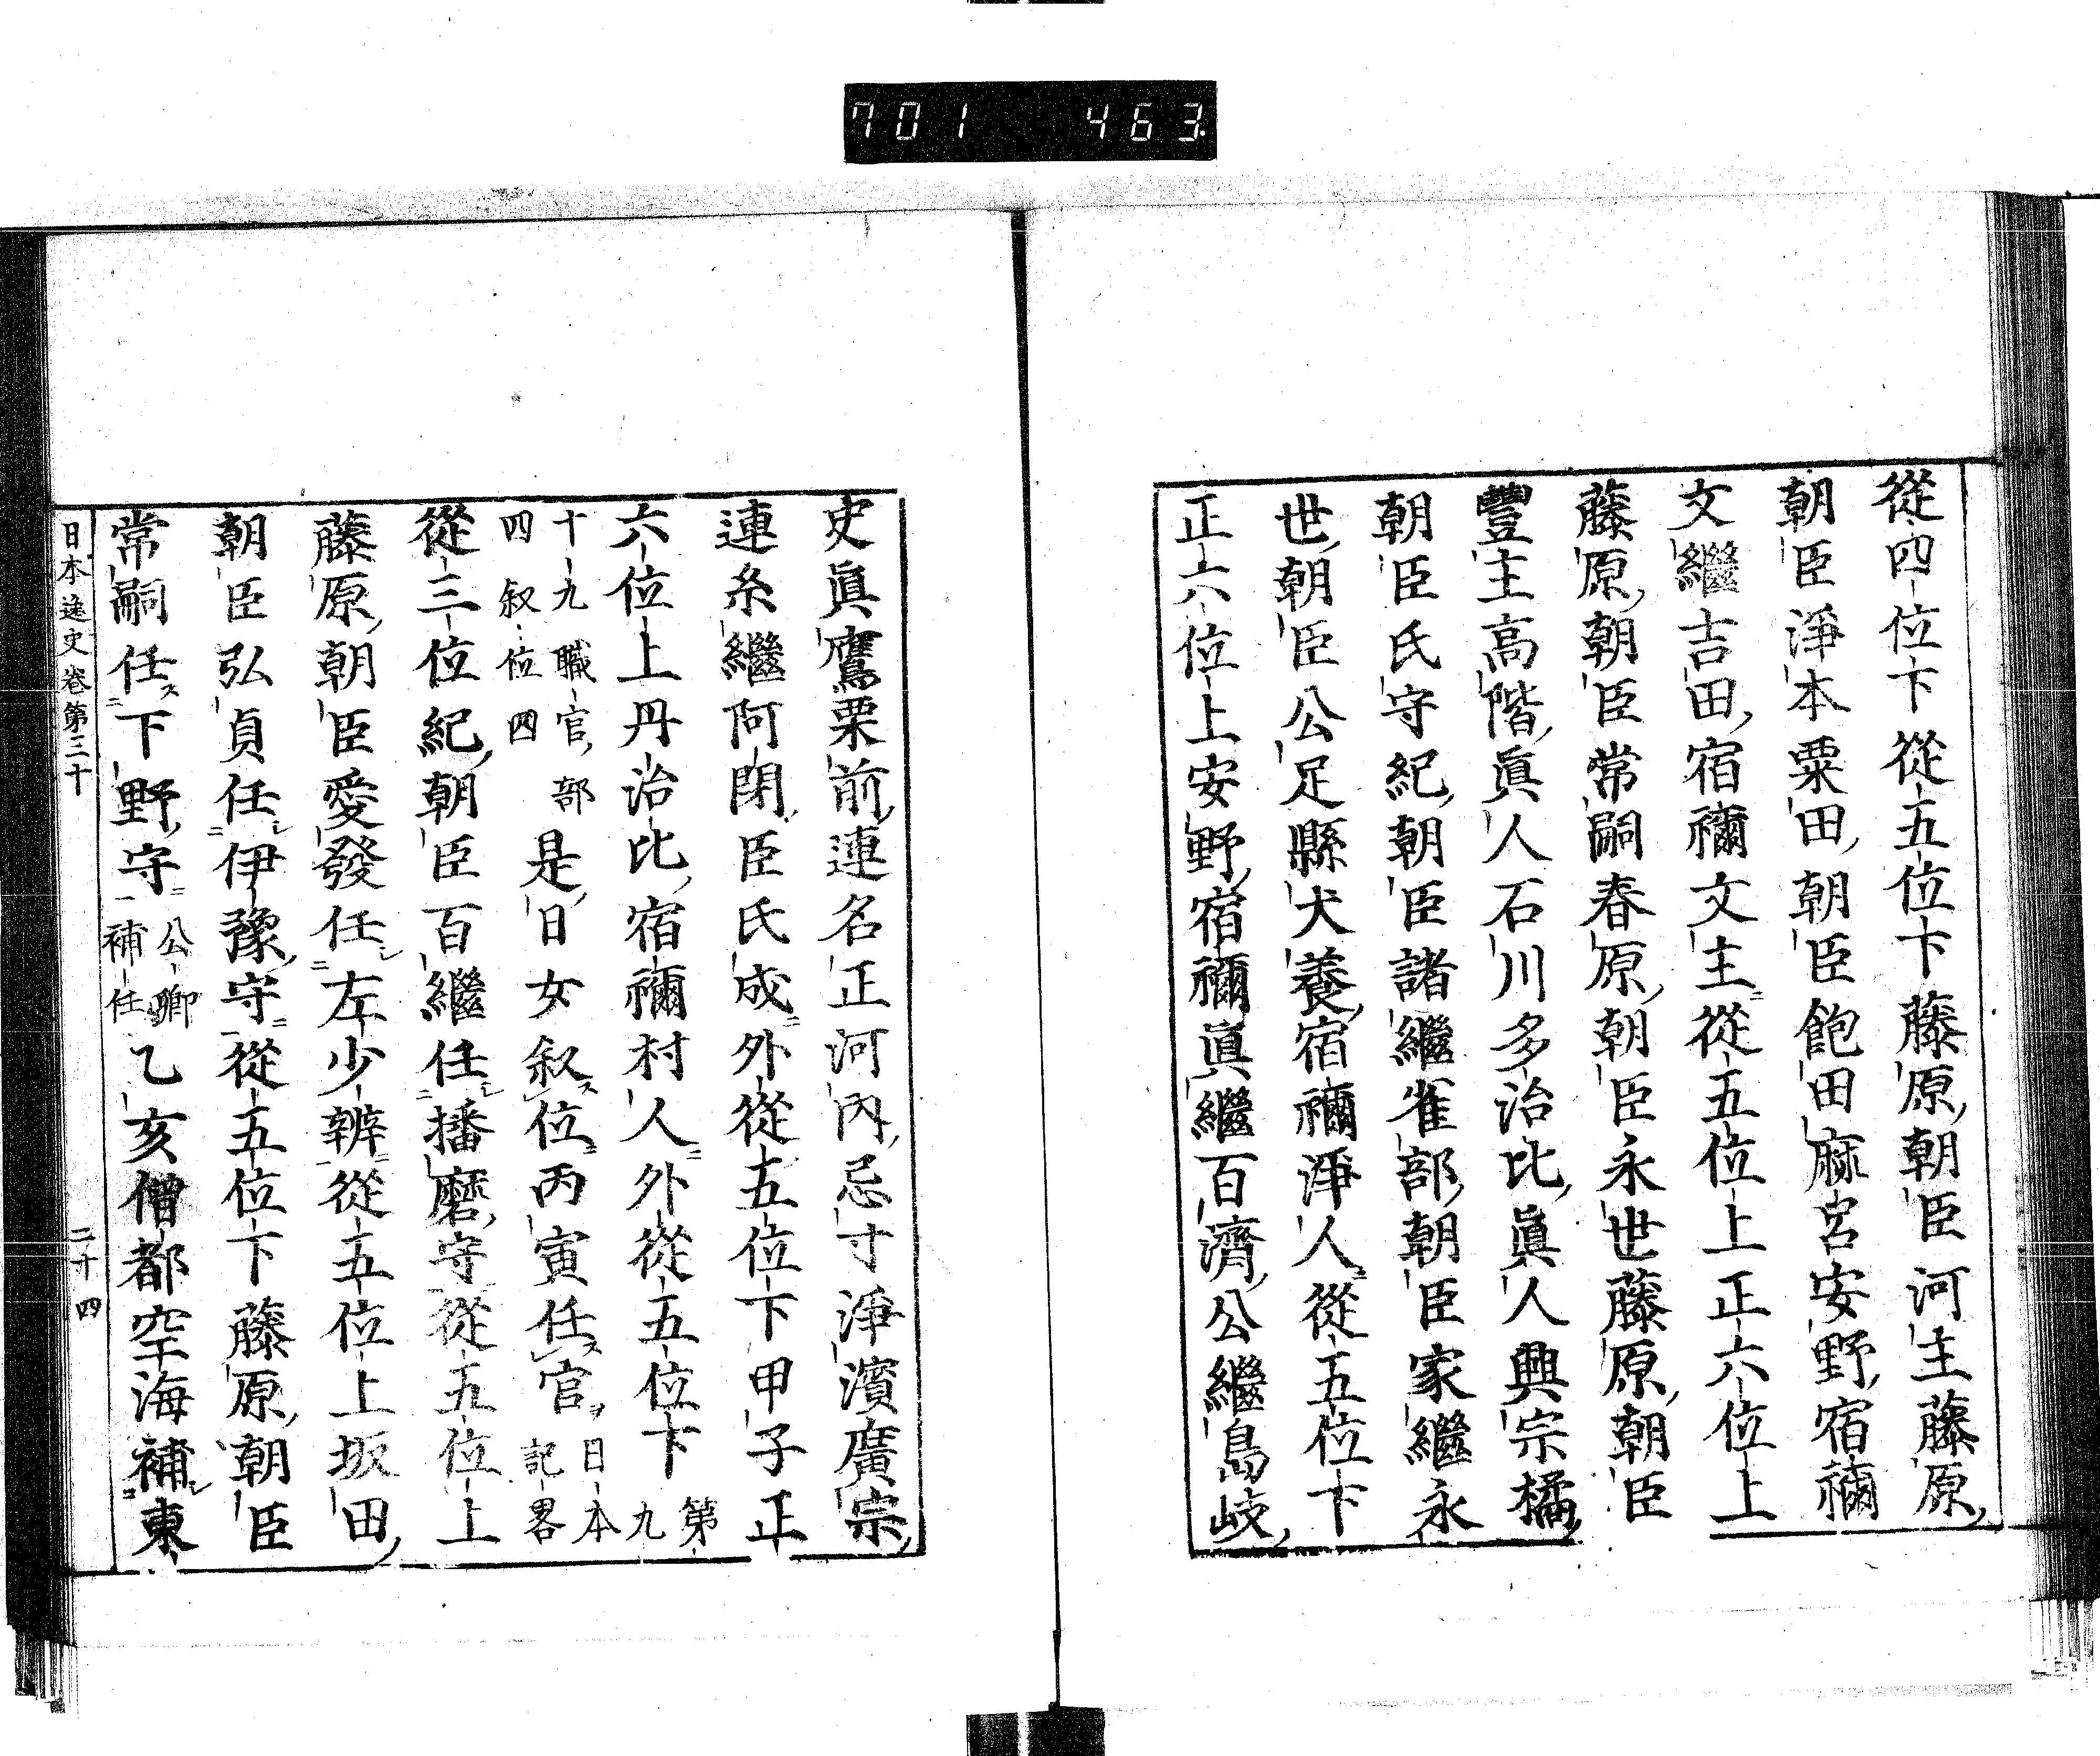 701 463
從四位下從五位下藤原朝臣河主藤原
朝臣淨本粟田朝臣飽田麻呂安野宿禰
文繼吉田宿禰文主從五位上正六位上
藤原朝臣常嗣春原朝臣永世藤原朝臣
豐主高階眞人石川多治比眞人興宗橘
朝臣氏守紀朝臣諸繼雀部朝臣家繼永
世朝臣公足縣犬養宿禰淨人從五位下
正六位上安野宿禰眞繼百濟公繼島岐
史眞鷹栗前連名正河內忌寸淨濱廣宗
連糸繼阿閇臣氏成外從五位下甲子正
六位上丹治比宿禰村人外從五位下第九
十九職官部四叙位四是日女叙位丙寅任官日本記畧
從三位紀朝臣百繼任播磨守從五位上
藤原朝臣愛發任左少辨從五位上坂田
朝臣弘貞任伊豫守從五位下藤原朝臣
常嗣任下野守公卿補任乙亥僧都空海補東
日本逸史卷第三十 二十四